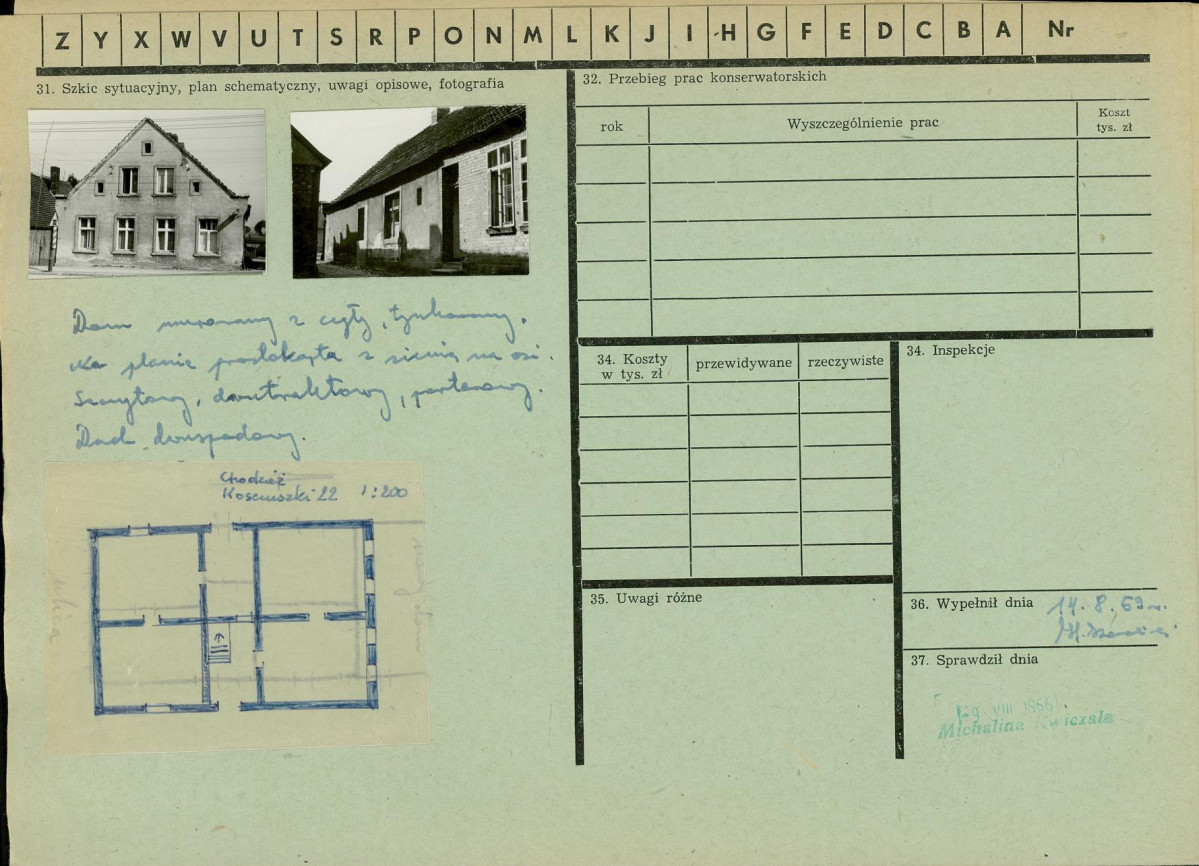 Z Y X W V U T S R P O N M L K J I H G F E D C B A Nr
31. Szkic sytuacyjny, plan schematyczny, uwagi opisowe, fotografia
Dom murowany z cegły, tynkowany.
Na planie prostokąta z sienią na osi.
Szczytowy, dwutraktowy, parterowy.
Dach dwuspadowy.
Chodzież
Kościuszki 22 1:200
ulica
32. Przebieg prac konserwatorskich
rok
Wyszczególnienie prac
Koszt
tys. zł
34. Koszty
w tys. zł
przewidywane
rzeczywiste
34. Inspekcje
35. Uwagi różne
36. Wypełnił dnia 14.8.69 r.
37. Sprawdził dnia
VIII 1986
Michalina Kwiczala